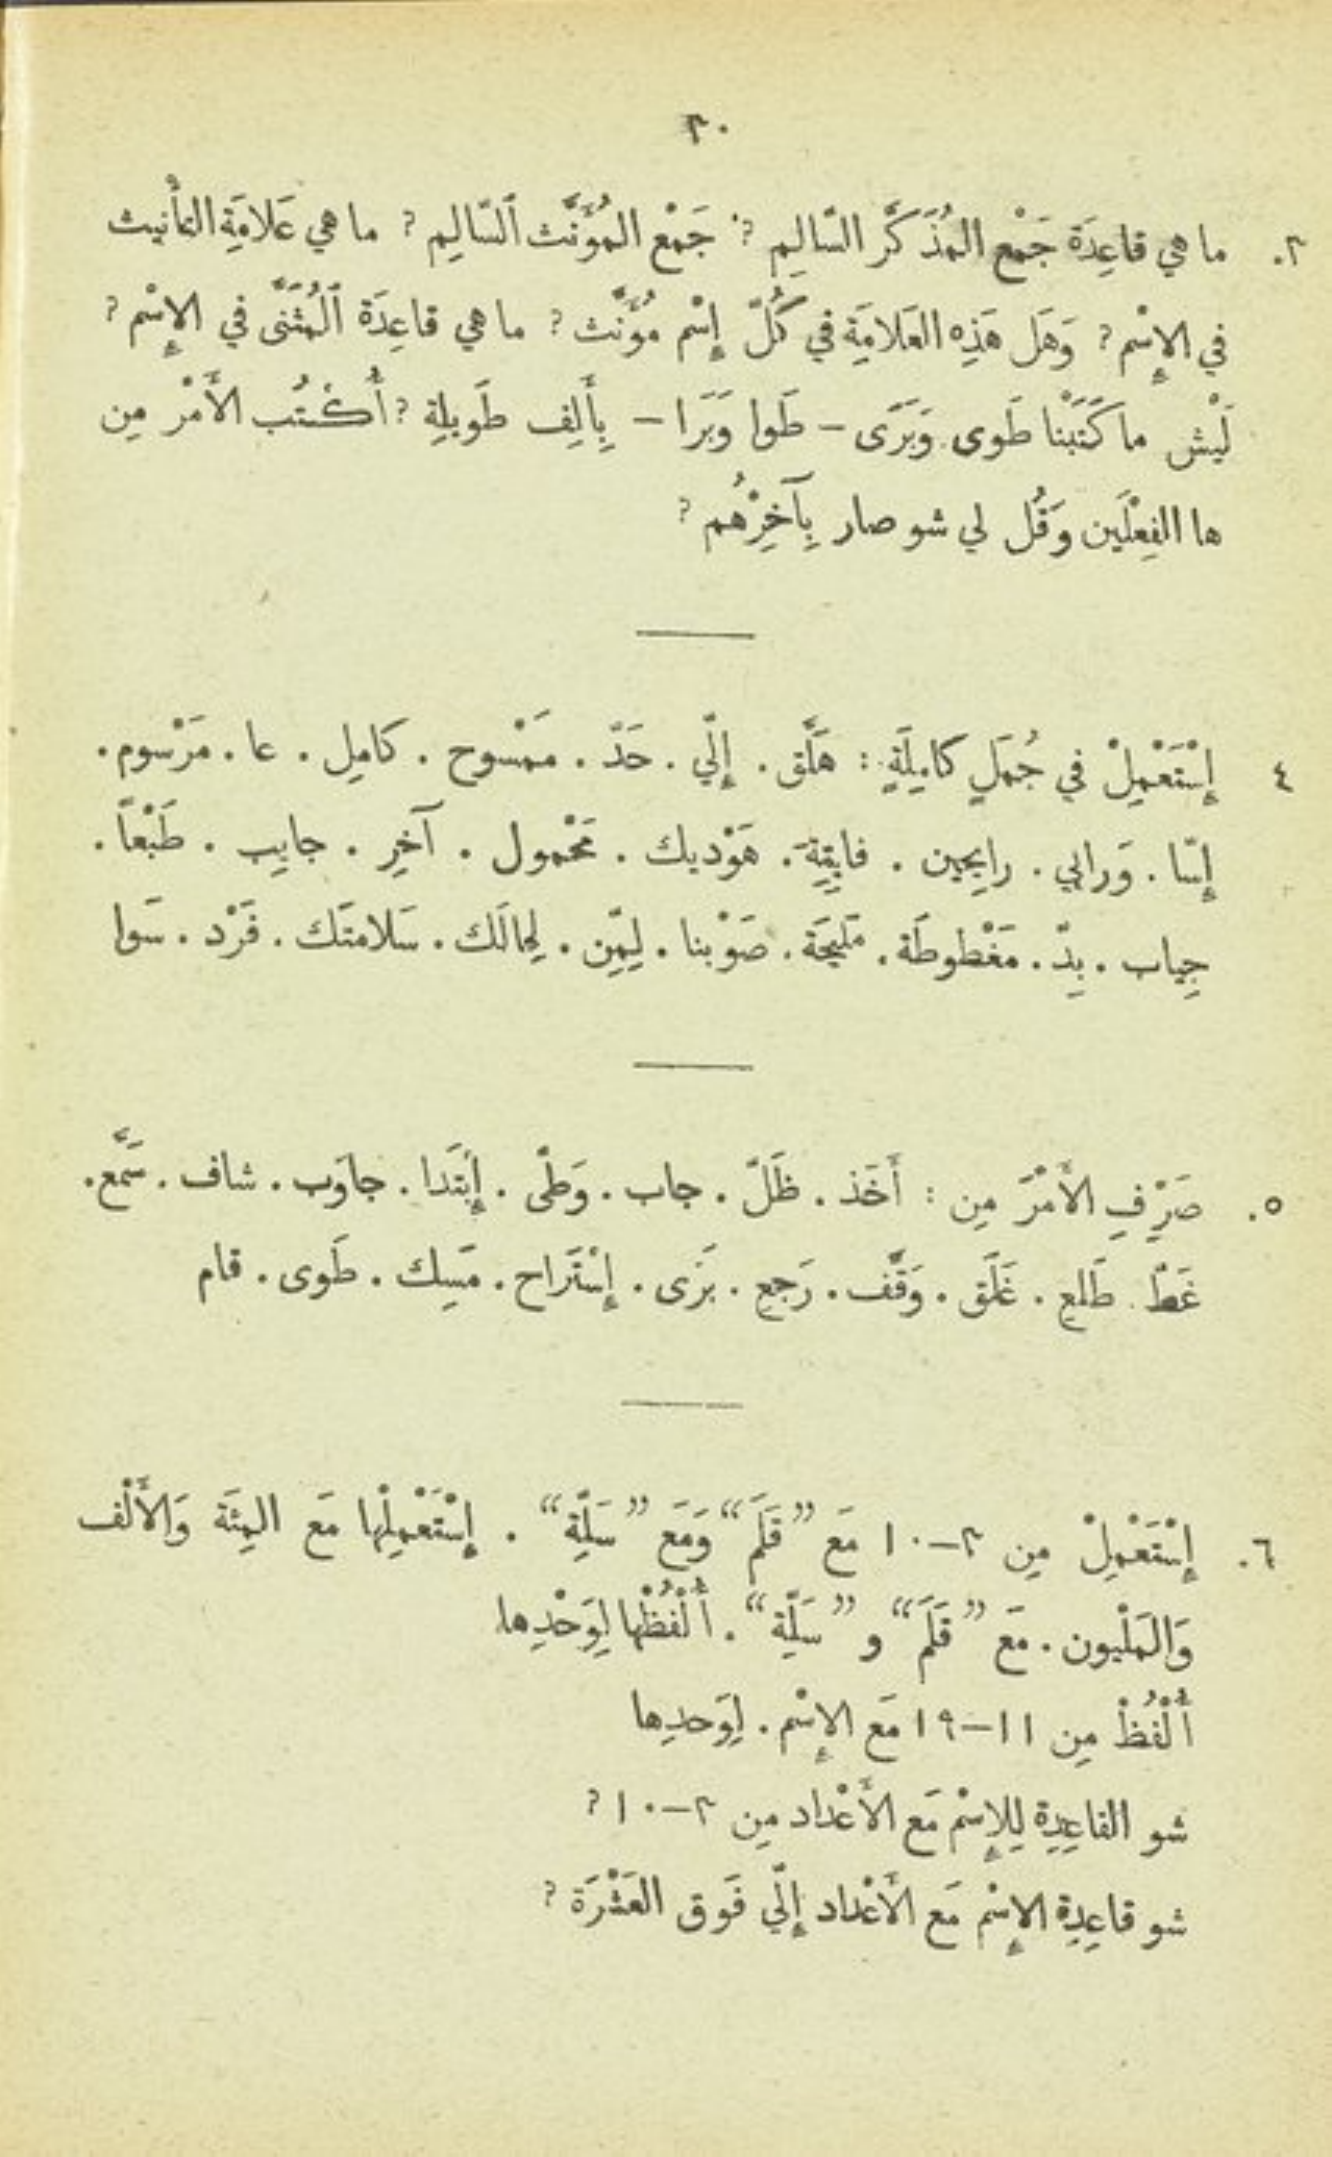 ٣٠
٣. ما هي قاعِدَة جَمْع المُذَكَّر السّالِم ? جَمْع المُؤَنَّث ٱلسّالِم ? ما هي عَلامَةِ التأْنيث
في الإِسْم ? وَهَل هَذِهِ العَلامَةِ في كُلّ إِسْم مُؤَنَّث ? ما هي قاعِدَة ٱلمُثَنَّى في الإِسْم ?
لَيْش ما كَتَبْنا طَوى وَبَرَى – طَوا وَبَرَا – بِأَلِف طَويلِة ? أُكْتُب الأَمْر مِن
ها الفِعْلَين وَقُل لي شو صار بِآخِرْهُم ?
٤ إِسْتَعْمِلْ في جُمَلٍ كامِلَةٍ : هَلَّق . إِلّي . حَدّ . مَمْسوح . كامِل . عا . مَرْسوم .
إِسّا . وَرايي . رايِحين . فايِتِة . هَوْديك . مَحْمول . آخِر . جايِب . طَبْعاً .
جِياب . بِدّ . مَغْطوطَة . مَليحَة . صَوْبنا . لِمِّن . لِحالَك . سَلامتَك . فَرْد . سَوا
٥. صَرِّفِ الأَمْرَ مِن : أَخَذ . ظَلّ . جاب . وَطّى . إِبْتَدا . جاوَب . شاف . سَمَّع .
غَطّ . طَلع . غَلَّق . وَقَّف . رَجع . بَرَى . إِسْتَراح . مَسِك . طَوى . قام
٦. إِسْتَعْمِلْ مِن ٣–١٠ مَعَ ”قَلَم“ وَمَعَ ”سَلِّة“ . إِسْتَعْمِلْها مَعَ المِئَة وَالأَلْف
وَالمَلْيون . مَعَ ”قَلَم“ و ”سَلِّة“ . أُلْفُظْها لِوَحْدِها
أُلْفُظْ مِن ١١–١٩ مَع الإِسْم . لِوَحدِها
شو القاعِدِة لِلإِسْم مَع الأَعْداد مِن ٣–١٠ ?
شو قاعِدِة الإِسْم مَع الأَعْداد إِلّي فَوق العَشْرَة ?